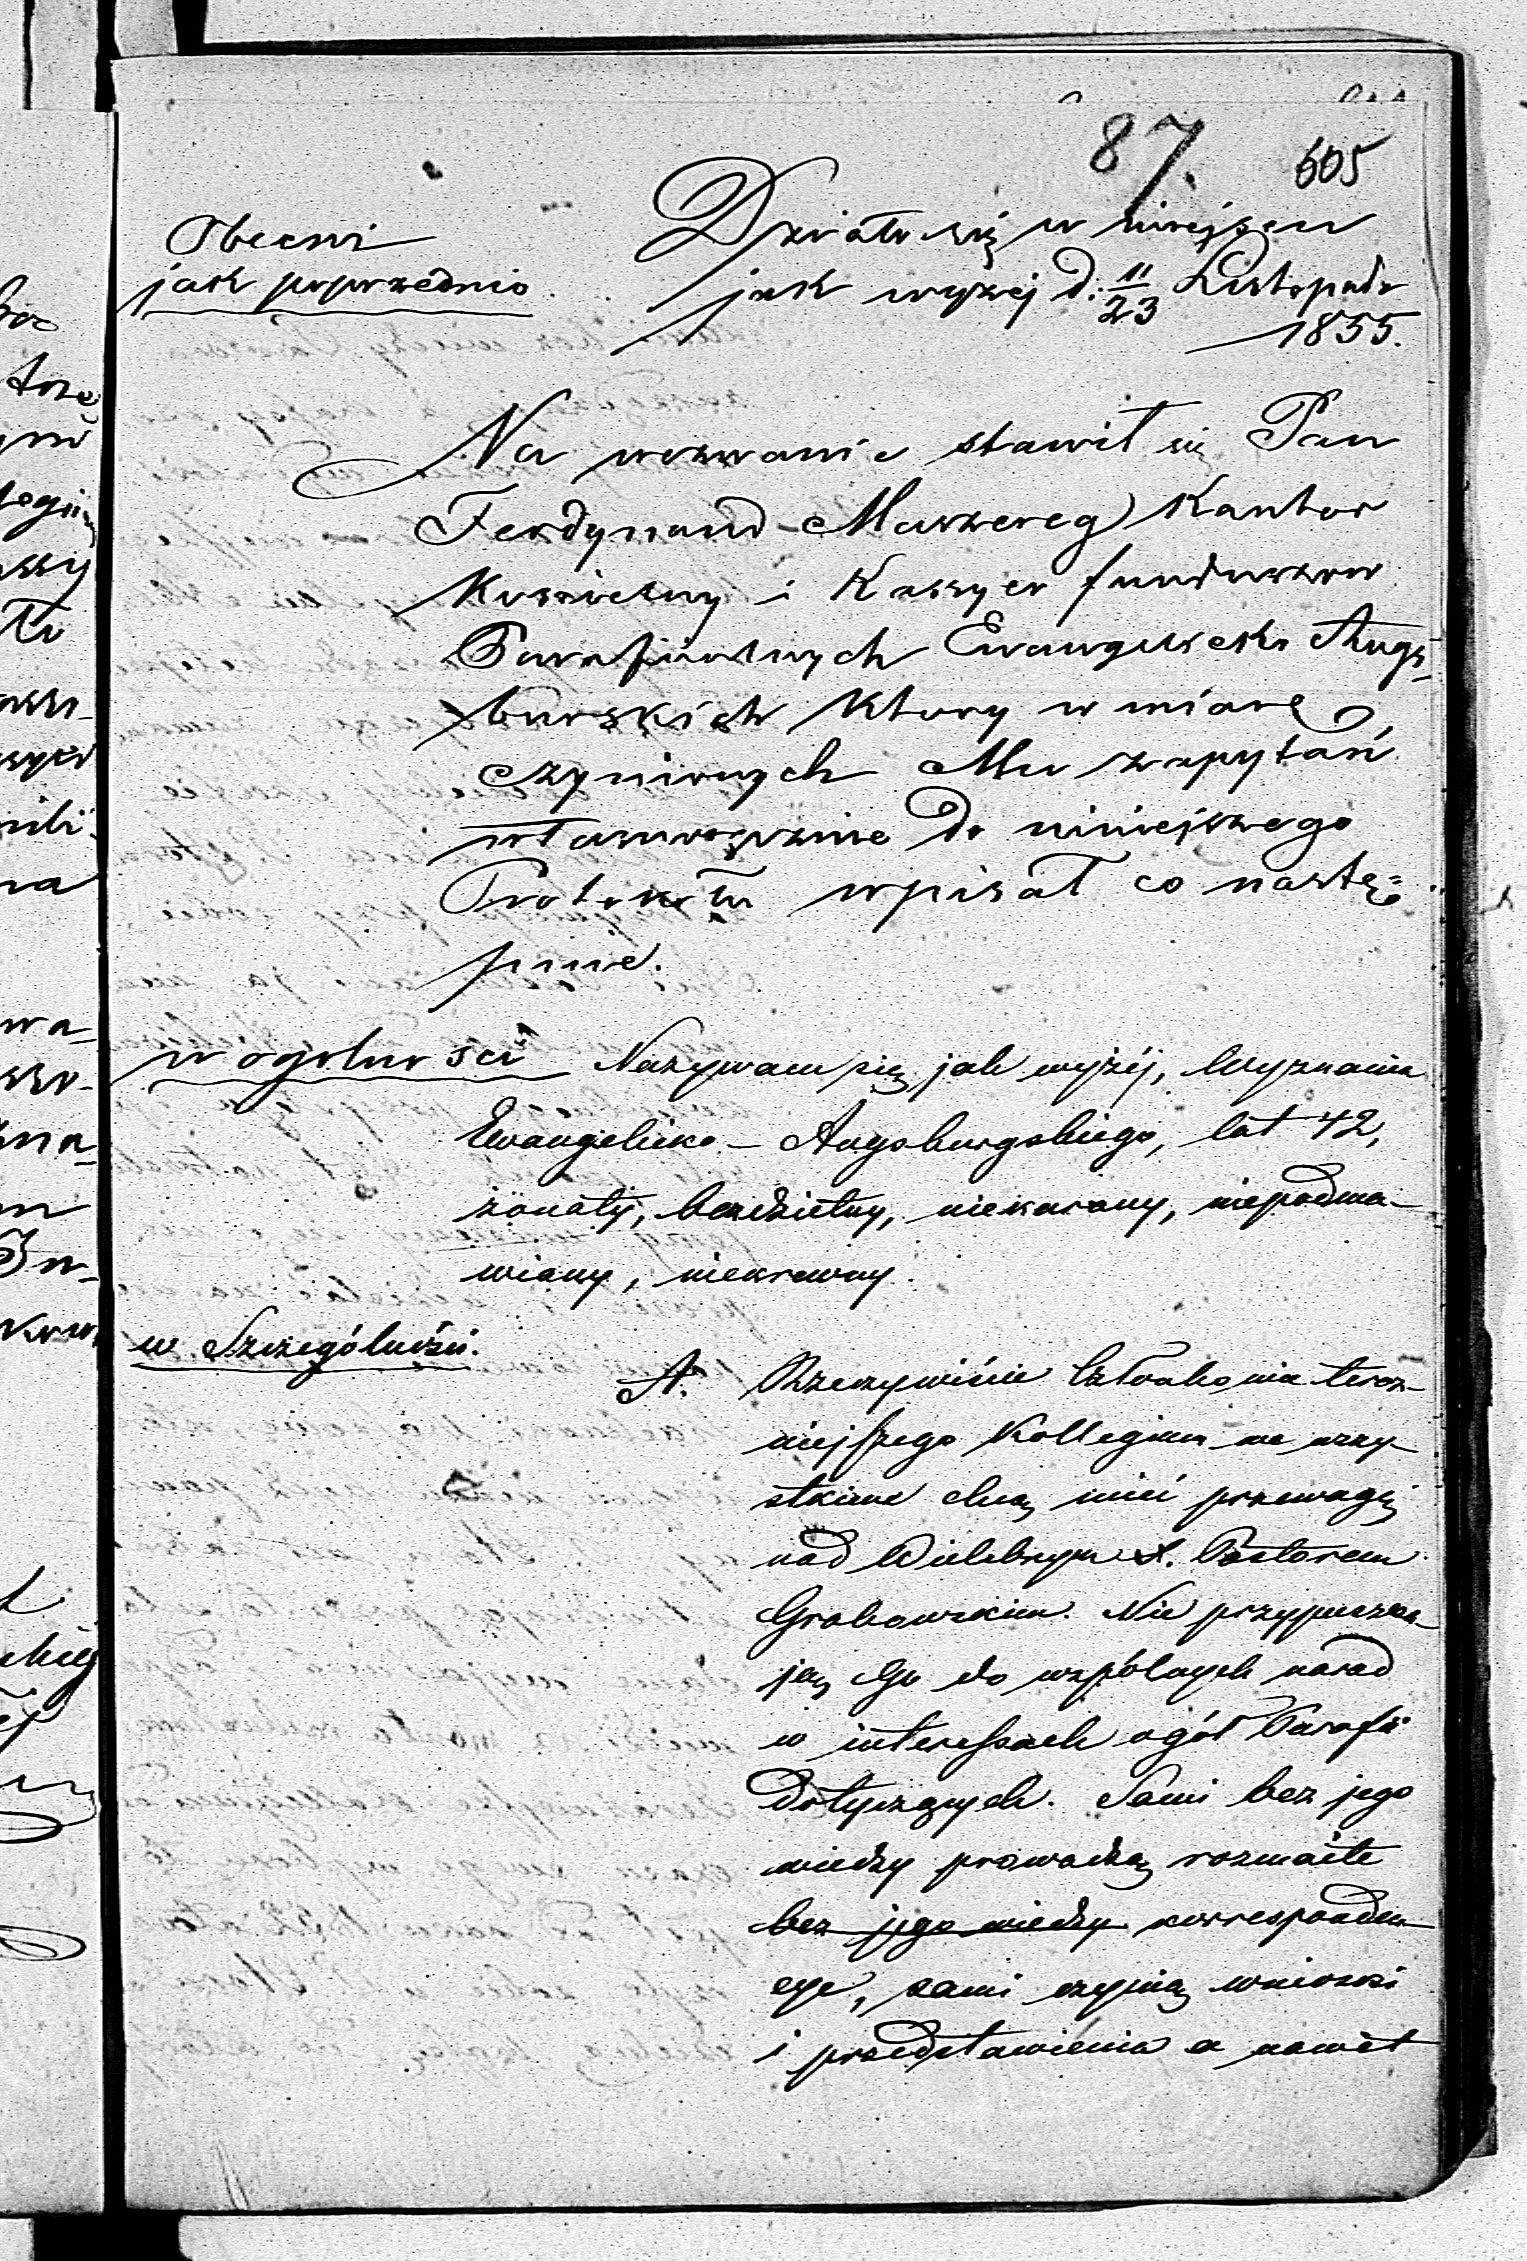 87. 605
Obecni
jak poprzednio
Działo się w miejscu
jak wyżej d: 11/23 Listopada
1855.
Na wezwanie stawił się Pan
Ferdynand Kantor
Koscielny i Kassyer funduszow
Parafialnych Ewangelicko Augs-
burskich ktory w miarę
czynionych Mu zapytań
własnoręcznie do niniejszego
Protokołu wpisał co nastę=
puie.
w ogolności Nazywam się jak wyżéj, Wyznania
Ewangelicko - Augsburgskiego, lat 42,
żonaty, bezdzietny, niekarany, niepodma-
wiany, niekrewny.
w Szczególności.
A. Rzeczywiście Członkowie teraz-
niejszego Kollegium we wszy-
stkiem chcą mieć przewagę
nad Wielebnym X. Pastorem
Grabowskim. Nie przypuszcza-
ją Go do wspólnych narad
w interessach ogół Parafii
dotyczących. Sami bez jego
wiedzy prowadzą rozmaite
bez jego wiedzy korresponden-
cye, sami czynią wnioski
i przedstawienia a nawet